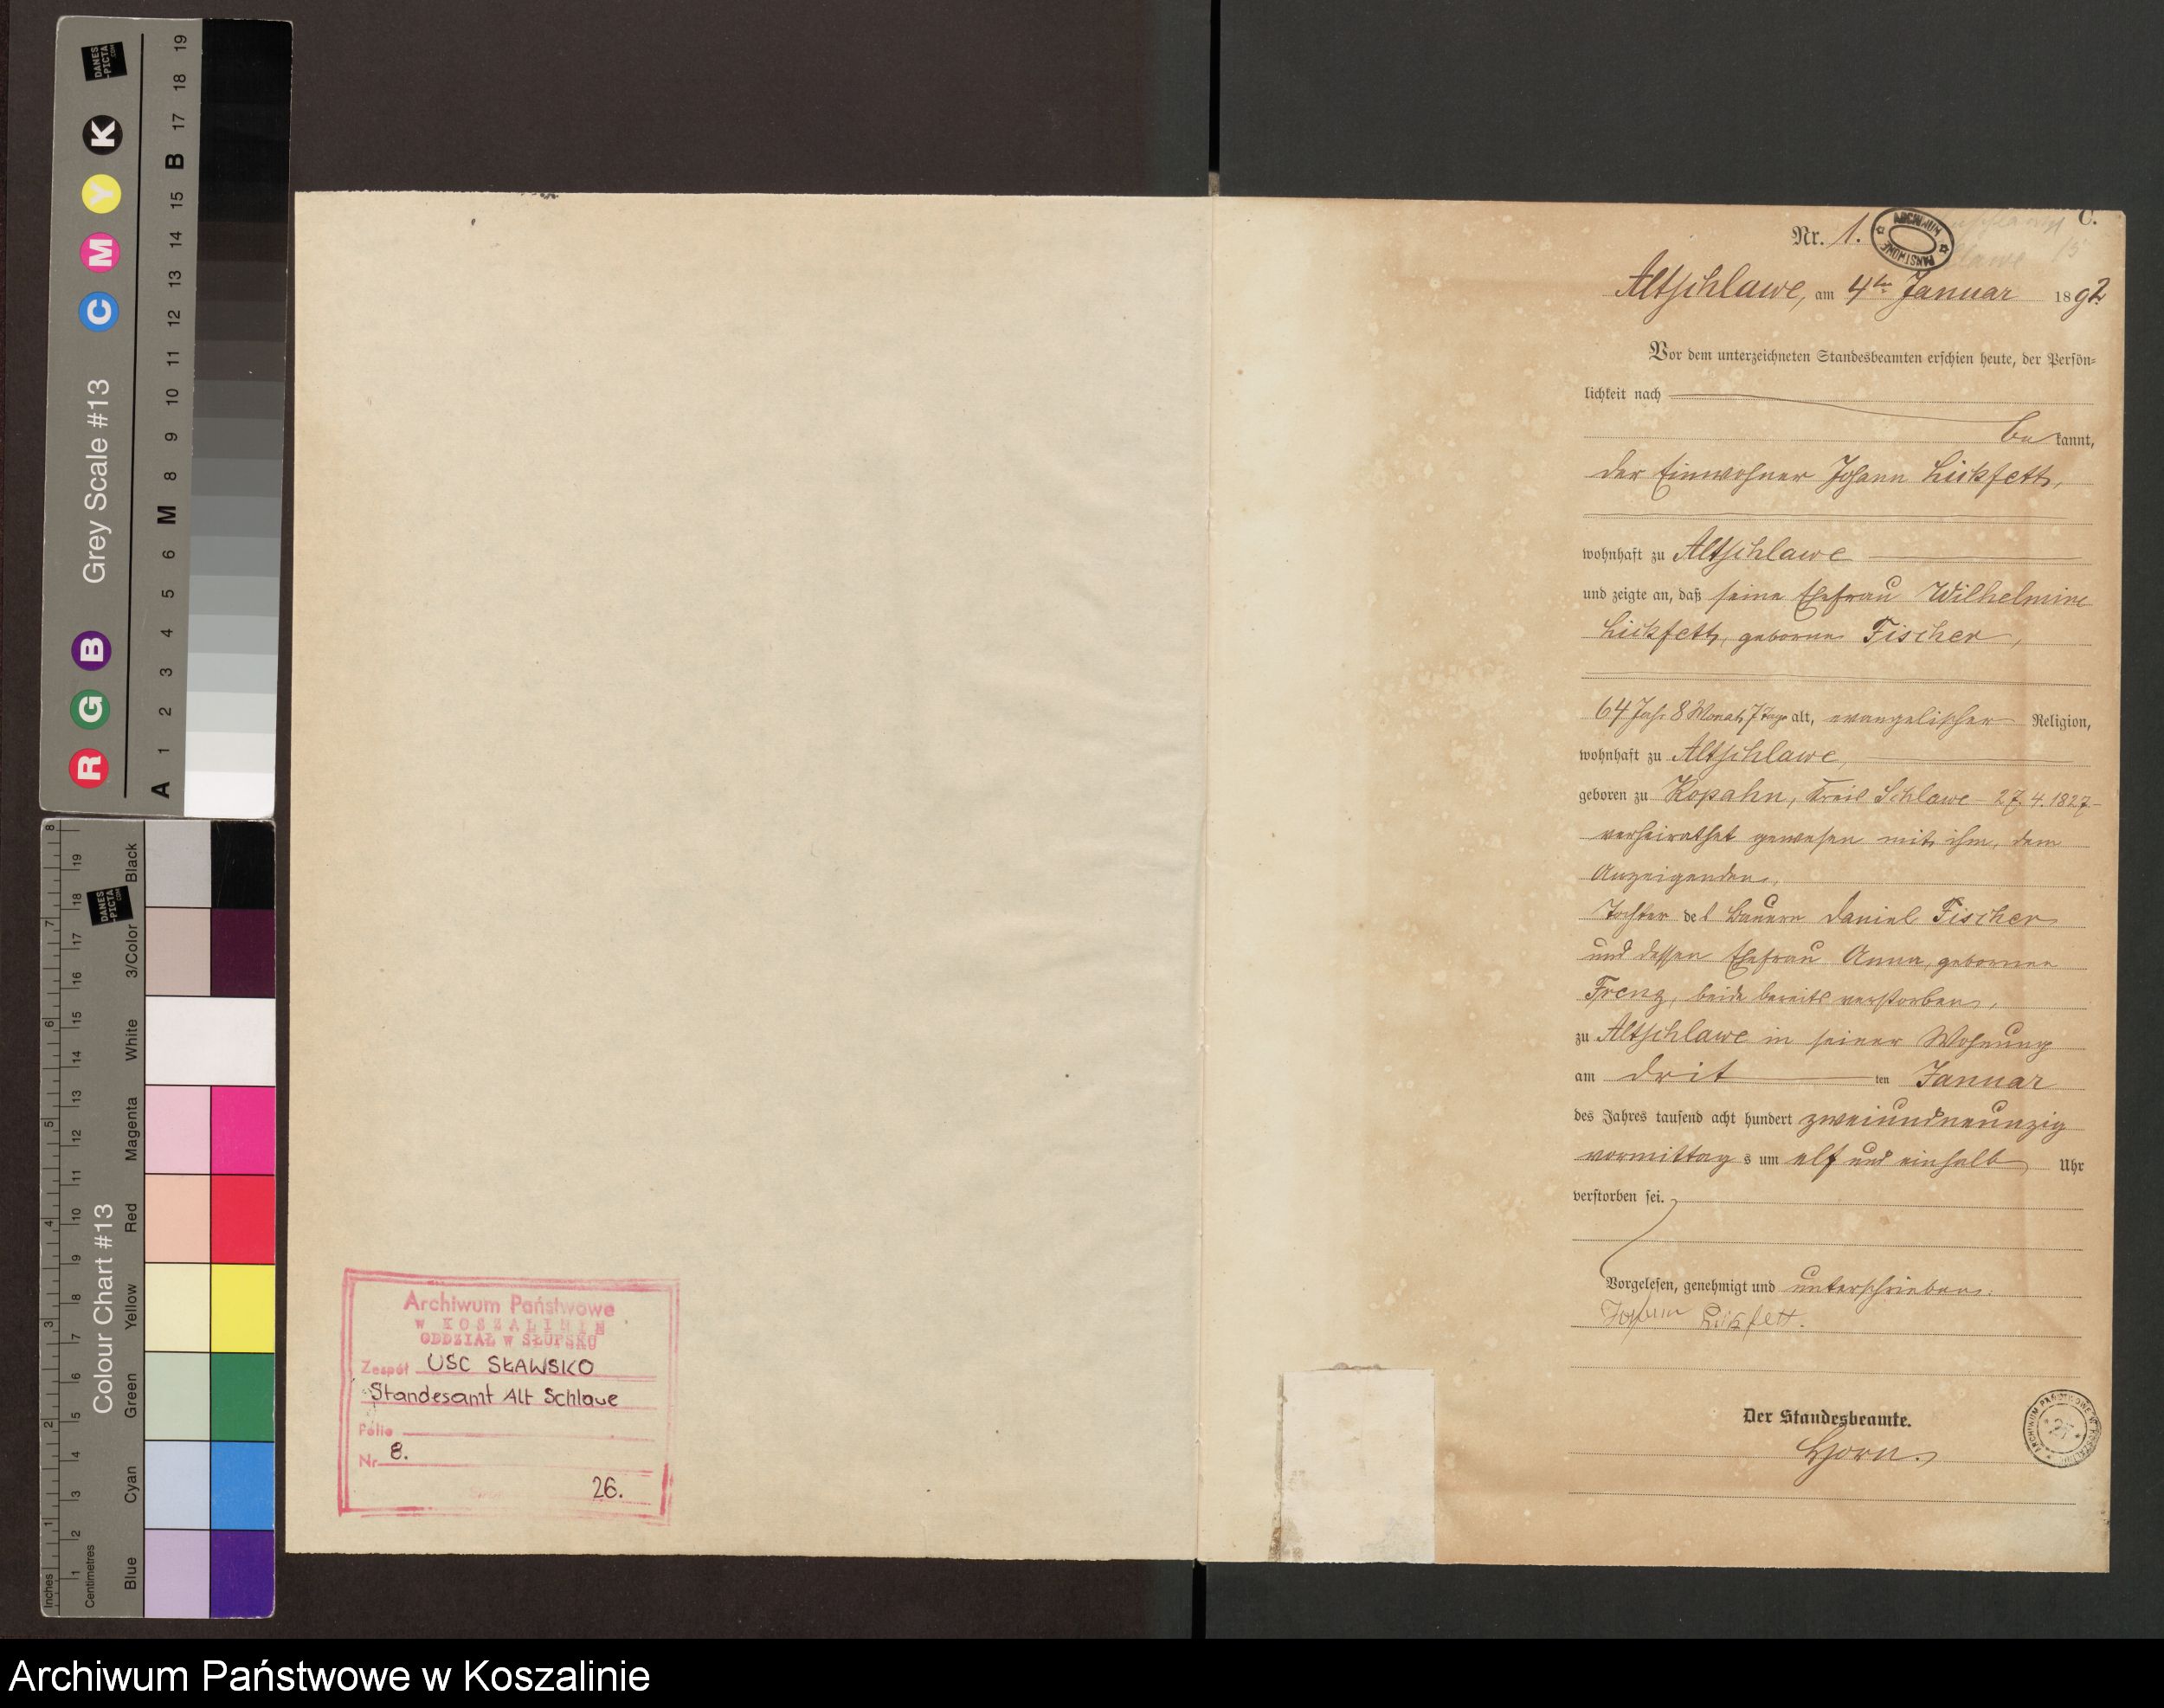 DANES
-PICTA
.COM
Grey Scale #13
R G B C M Y K
A 1 2 3 4 5 6 M 8 9 10 11 12 13 14 15 B 17 18 19
DANES
-PICTA
.COM
Colour Chart #13
Blue Cyan Green Yellow Red Magenta White 3/Color Black
Inches 1 2 3 4 5 6 7 8
Centimetres 1 2 3 4 5 6 7 8 9 10 11 12 13 14 15 16 17 18 19
Archiwum Państwowe
W KOSZALINIE
ODDZIAŁ W SŁUPSKU
Zespół USC SŁAWSKO
Standesamt Alt Schlawe
Folio
Nr 8.
26.
C.
Nr. 1.
ARCHIWUM PAŃSTWOWE
Altschlawe, am 4ten Januar 1892
Vor dem unterzeichneten Standesbeamten erschien heute, der Persön-
lichkeit nach
be kannt,
der Einwohner Johann Lickfett,
wohnhaft zu Altschlawe
und zeigte an, daß seine Ehefrau Wilhelmine
Lickfett, geborne Fischer,
64 Jahr 8 Monat 7 Tage alt, evangelischer Religion,
wohnhaft zu Altschlawe,
geboren zu Kopahn, Kreis Schlawe - 27.4.1827 -
verheirathet gewesen mit ihm, dem
Anzeigenden,
Tochter des Bauern Daniel Fischer
und dessen Ehefrau Anna, geborenen
Freng, beide bereits verstorben,
zu Altschlawe in seiner Wohnung
am drit ten Januar
des Jahres tausend acht hundert zweiundneunzig
vormittag s um elf und einhalb Uhr
verstorben sei.
Vorgelesen, genehmigt und unterschrieben.
Johann Lickfett.
Der Standesbeamte.
ARCHIWUM PAŃSTWOWE W KOSZALINIE
Archiwum Państwowe w Koszalinie